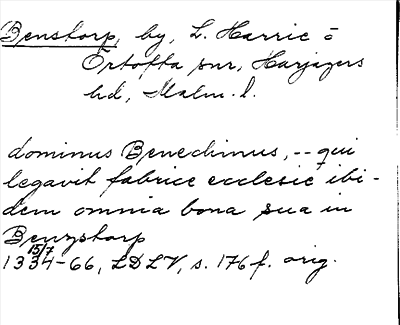 Benstorp, by, L. Harrie o
Örtofta snr, Harjagers
hd, Malm. l.
dominus Benechinus, -- qui
legavit fabrice ecclesie ibi-
dem omnia bona sua in
Benzstorp
15/7
1334-66, LDLV, s. 176 f. orig.